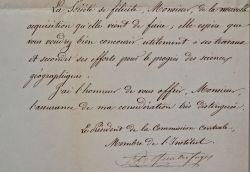 La Société se félicite, Monsieur, de la nouvelle
acquisition qu'elle vient de faire; elle espère que
vous voudrez bien concourir utilement à ses travaux
et seconder ses efforts pour le progrès des sciences
géographiques.
J'ai l'honneur de vous offrir, Monsieur,
l'assurance de ma considération très distinguée.
Le Président de la Commission Centrale,
Membre de l'Institut